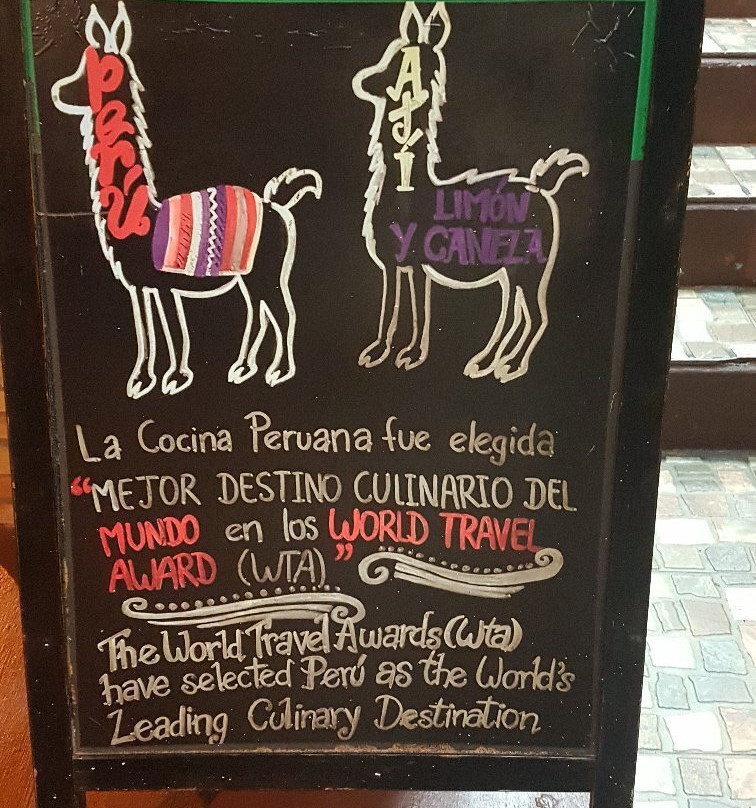 Perú
Ají
LIMÓN
Y CANELA
La Cocina Peruana fue elegida
“MEJOR DESTINO CULINARIO DEL
MUNDO en los WORLD TRAVEL
AWARD (WTA)”
The World Travel Awards (Wta)
have selected Perú as the World's
Leading Culinary Destination